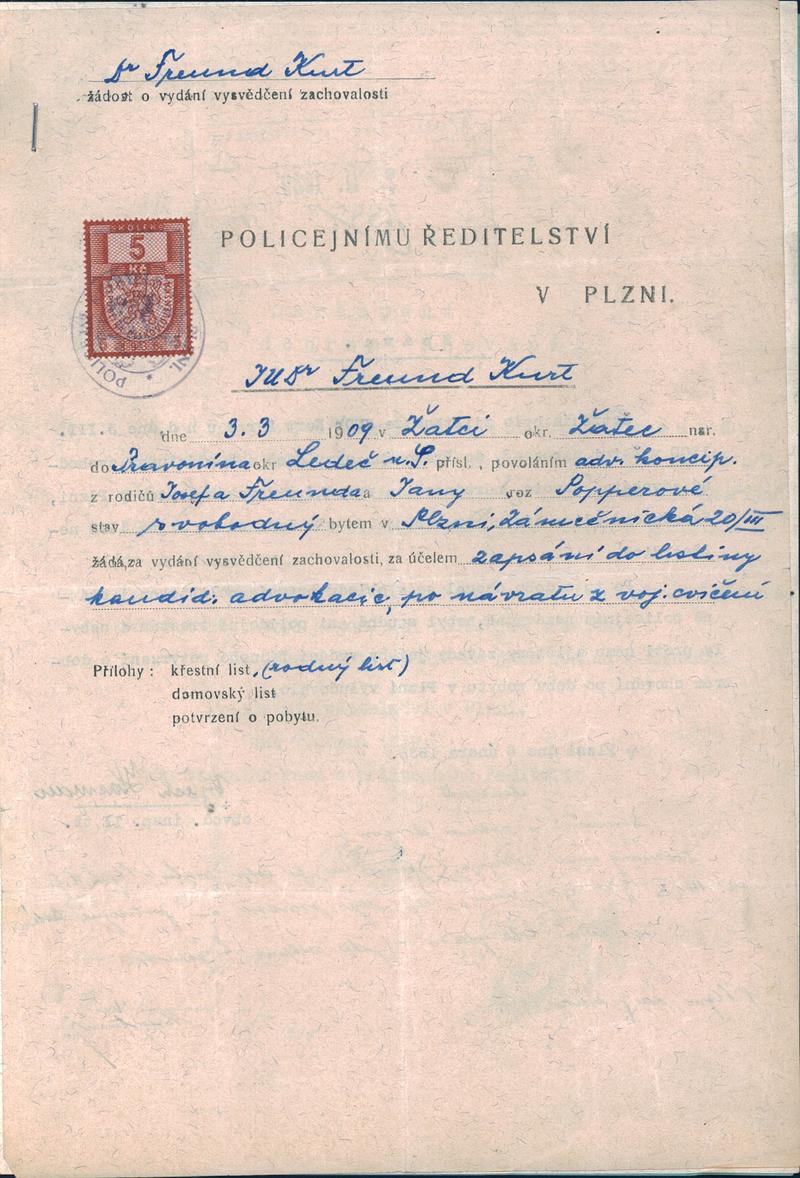 Dr Freund Kurt
žádost o vydání vysvědčení zachovalosti
KOLEK
5
Kč
POLICEJNÍMU ŘEDITELSTVÍ
V PLZNI.
JUDr Freund Kurt
dne 3. 3 1909 v Žatci okr. Žatec nar.
do Pravonína okr Ledeč n. S. přísl., povoláním adv. koncip.
z rodičů Josefa Freunda a Jany roz Popperové
stav svobodný bytem v Plzni, Zámečnická 20/III
žádá, za vydání vysvědčení zachovalosti, za účelem zapsání do listiny
kandid. advokacie, po návratu z voj. cvičení
Přílohy: křestní list, (rodný list)
domovský list
potvrzení o pobytu.